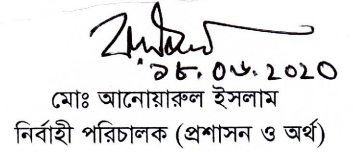 ১৮.০৬.2020
মোঃ আনোয়ারুল ইসলাম
নির্বাহী পরিচালক (প্রশাসন ও অর্থ)